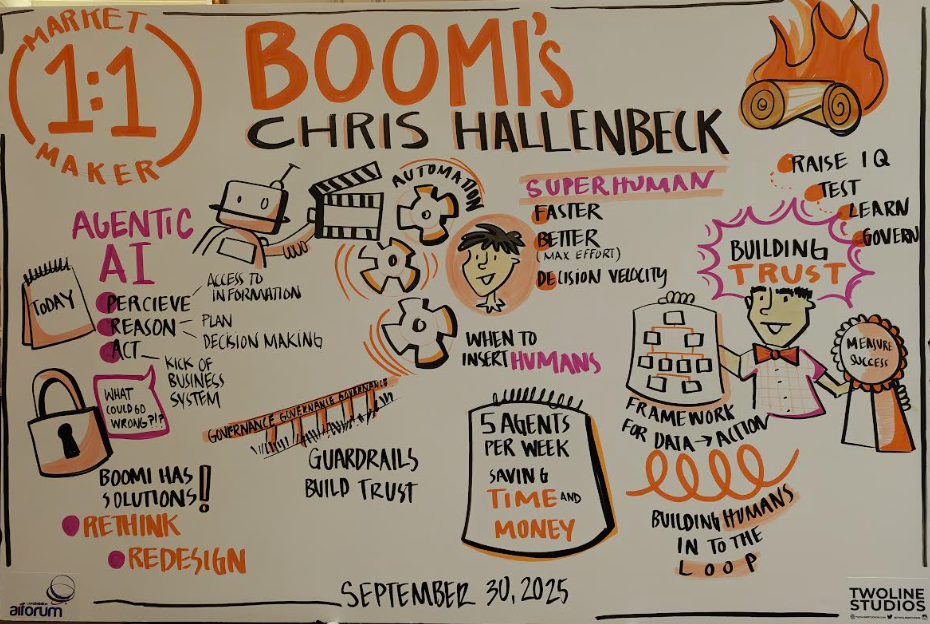 MARKET
1:1
MAKER
BOOMI's
CHRIS HALLENBECK
AGENTIC
AI
TODAY
PERCIEVE
ACCESS TO
INFORMATION
REASON
PLAN
DECISION MAKING
ACT
KICK OF
BUSINESS
SYSTEM
WHAT
COULD GO
WRONG?!?
BOOMI HAS
SOLUTIONS!
RETHINK
REDESIGN
AUTOMATION
GOVERNANCE GOVERNANCE GOVERNANCE
GUARDRAILS
BUILD TRUST
SUPERHUMAN
FASTER
BETTER
(MAX EFFORT)
DECISION VELOCITY
WHEN TO
INSERT HUMANS
5 AGENTS
PER WEEK
SAVING
TIME AND
MONEY
RAISE IQ
TEST
LEARN
GOVERN
BUILDING
TRUST
MEASURE
SUCCESS
FRAMEWORK
FOR DATA → ACTION
BUILDING HUMANS
IN TO THE
LOOP
SEPTEMBER 30, 2025
aiforum
TWOLINE
STUDIOS